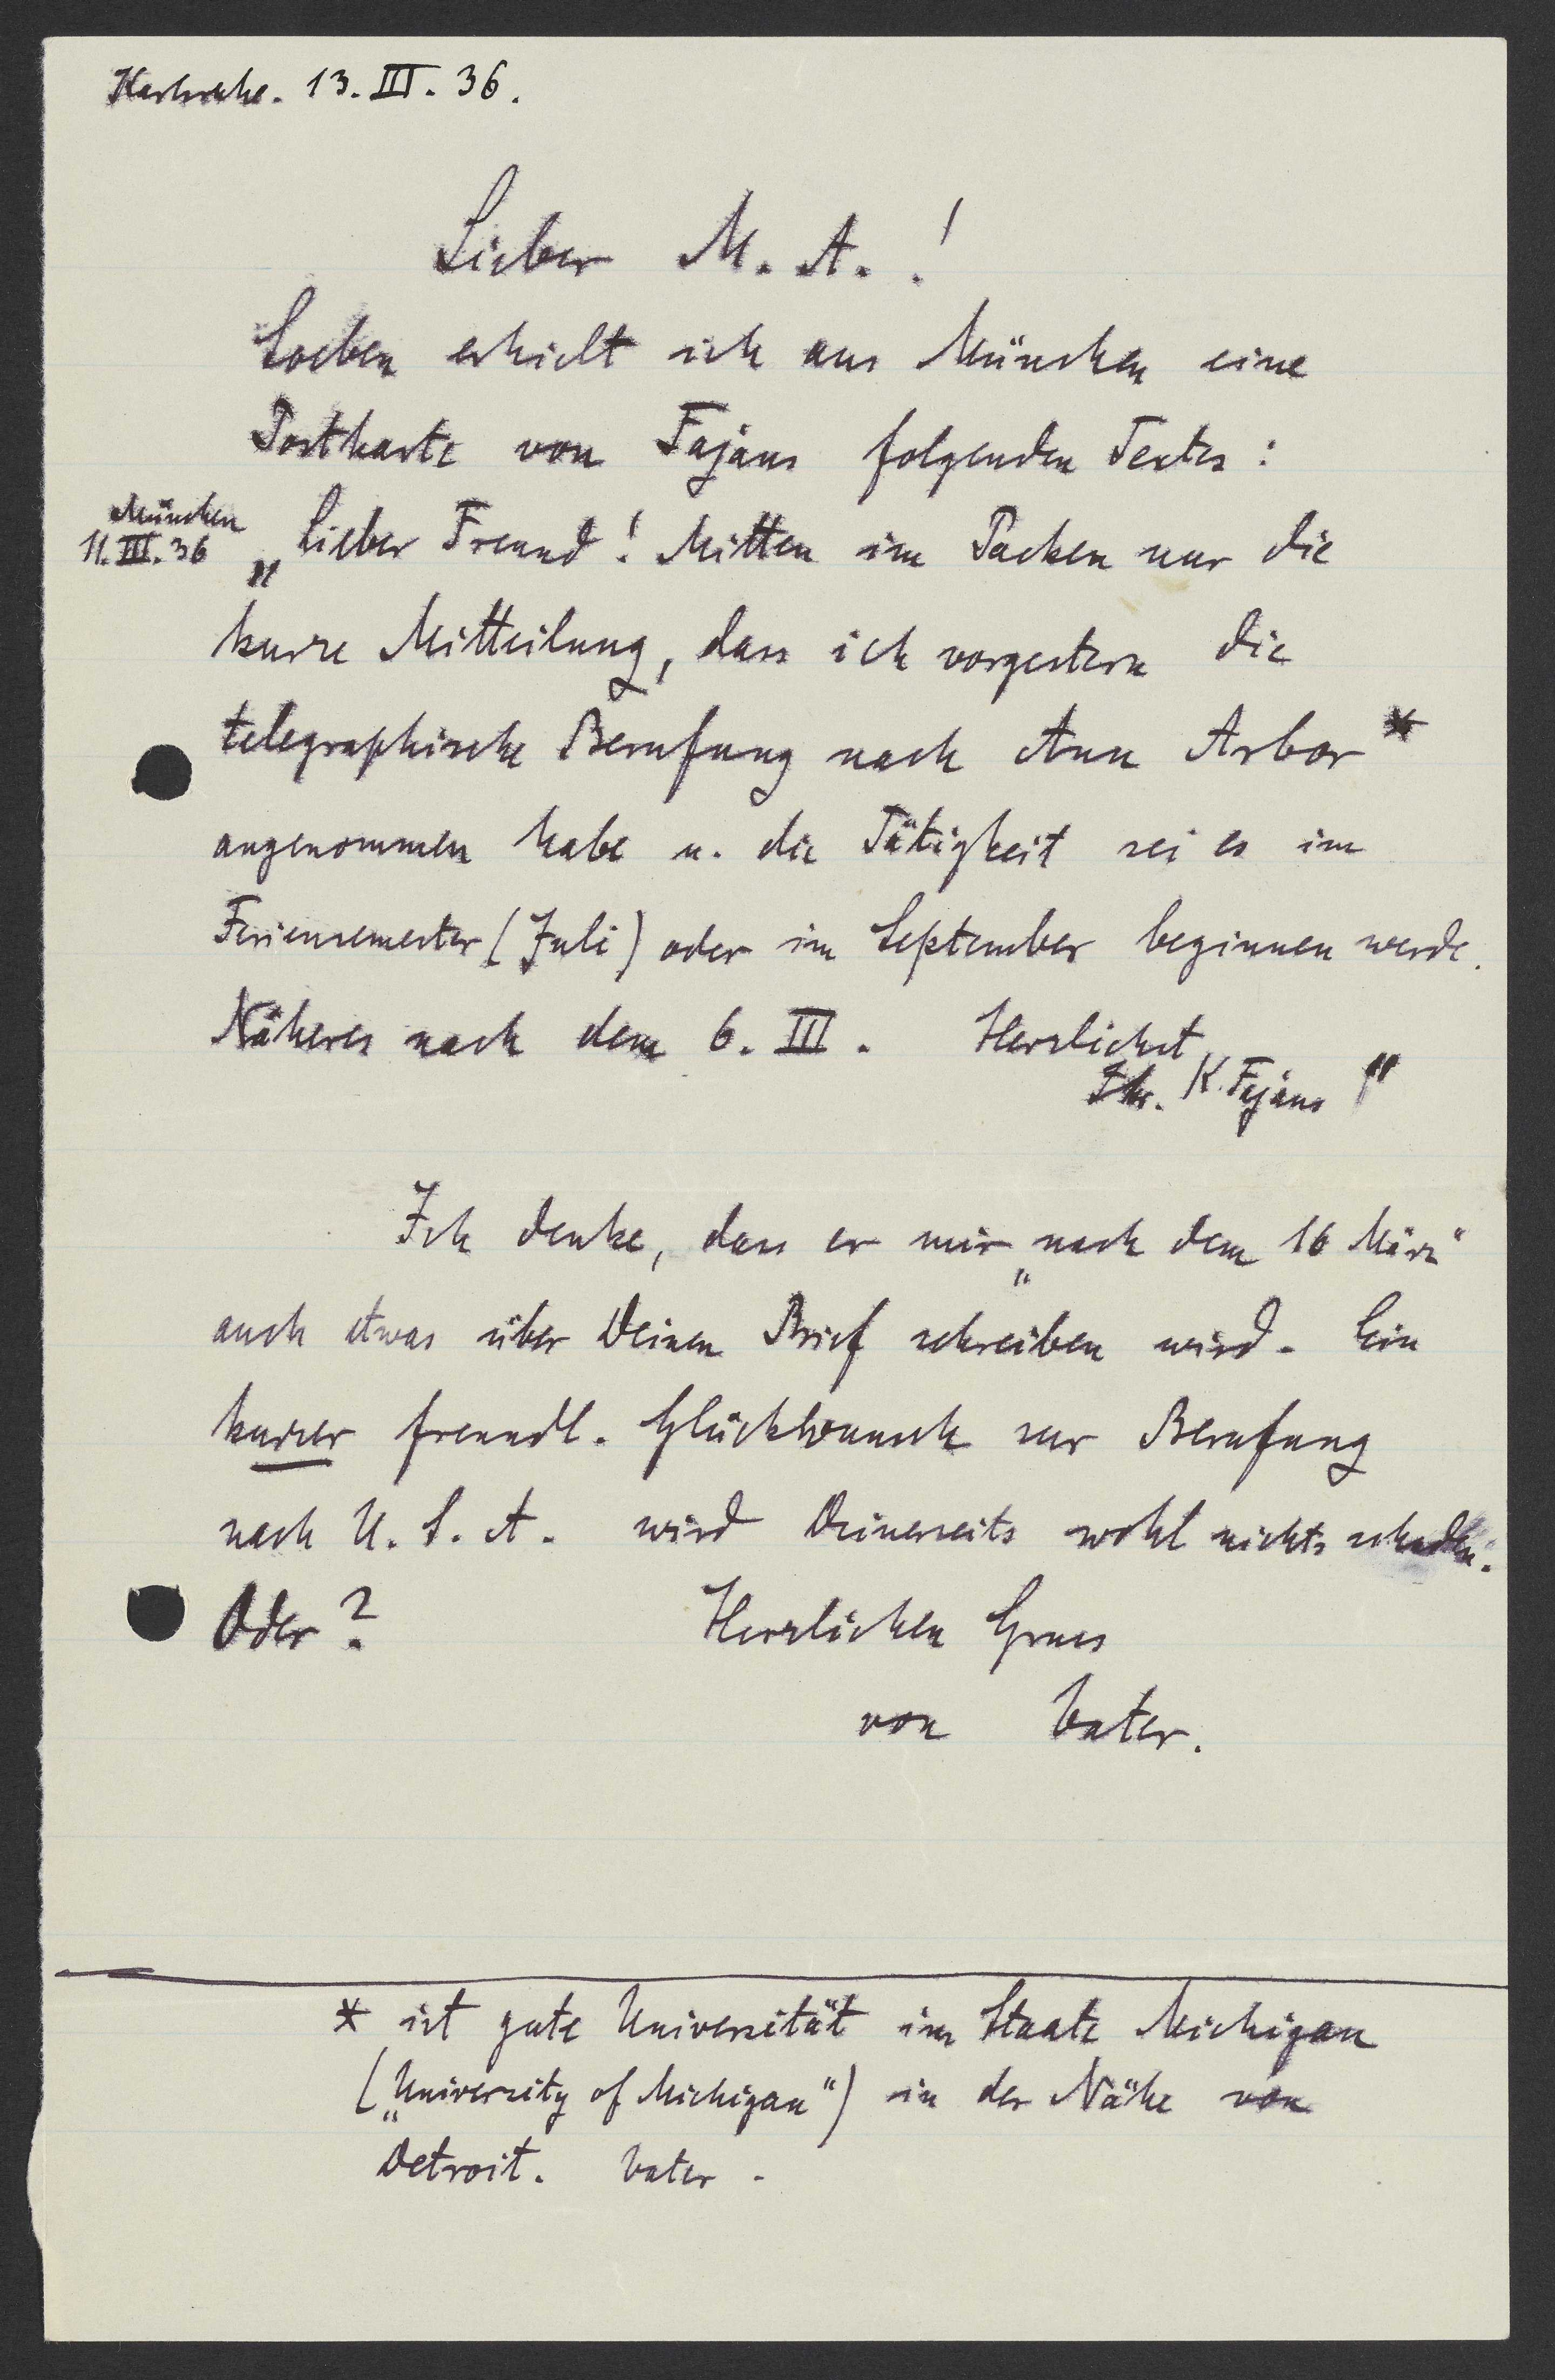 Karlsruhe. 13. III. 36.
Lieber M. A. !
Soeben erhielt ich aus München eine
Postkarte von Fajans folgenden Textes :
München
11. III. 36
„Lieber Freund! Mitten im Packen nur die
kurze Mitteilung, dass ich vorgestern die
telegraphische Berufung nach Ann Arbor *
angenommen habe u. die Tätigkeit sei es im
Feriensemester (Juli) oder im September beginnen werde.
Näheres nach dem 6. III. Herzlichst
Ihr. K. Fajans "
Ich denke, dass er mir „nach dem 16 März“
auch etwas über Deinen Brief schreiben wird. Ein
kurzer freundl. Glückwunsch zur Berufung
nach U. S. A. wird Deinerseits wohl nichts schaden.
Oder ? Herzlichen Gruss
von Vater.
* ist gute Universität im Staate Michigan
(„University of Michigan“) in der Nähe von
Detroit. Vater.